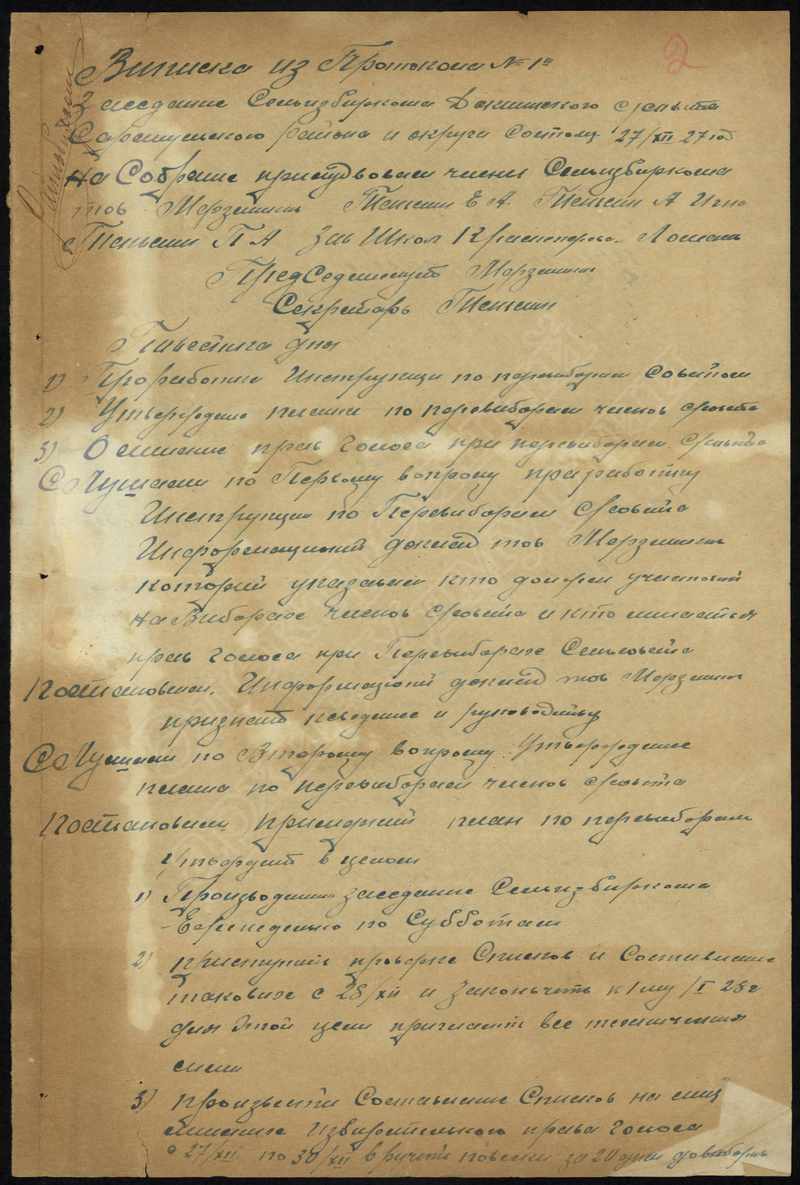 2
Виписка из Протокола № 1й
Заседание Сельизбиркома Докшинского с/совета
Сарапульского района и округа состоящ. 27/XII 27 год
На Собрание присудвовали члены Сельизбиркома
тов. Мерзлякин Тюлькин Е А. Тюлькин А
П А Зав Школ Красноперова
Председательств Мерзлякин
Секретарь Тюлькин
Павестка дня
1) Проработка Инструкци по перевиборам Советом
2) Утверждение плана по перевиборам членов с/совета
3) О лишение прав голоса при перевиборам с/совета
Слушали по Первому вопросу праработку
Инструкции по Перевиборам с/совета
Информационий доклад тов Мерзлякин
которий указывал кто должен участвовий
на Виборах членов с/совета и кто лишаетья
прав голоса при Перевиборах Сельсовета
Постановили. Информационий доклад тов Мерзлякин
признать к сведение и руководству
Слушали по Второму вопросу Утверждение
плана по перевиборам членов с/совета
Постановили примерний план по перевиборам
утвердить в целом
1) Производить заседание Сельизбиркома
Еженедельно по Субботам
2) приступить проверке Списков и Составление
таковых с 28/XII и законьчеть к 1му/I 28 г
для этой цели пригласить все технические
сили
3) произвести Составление Списков на лиц
лишение избирательного права голоса
с 27/XII по 30/XII вручить повестки за 20 дней до вибора